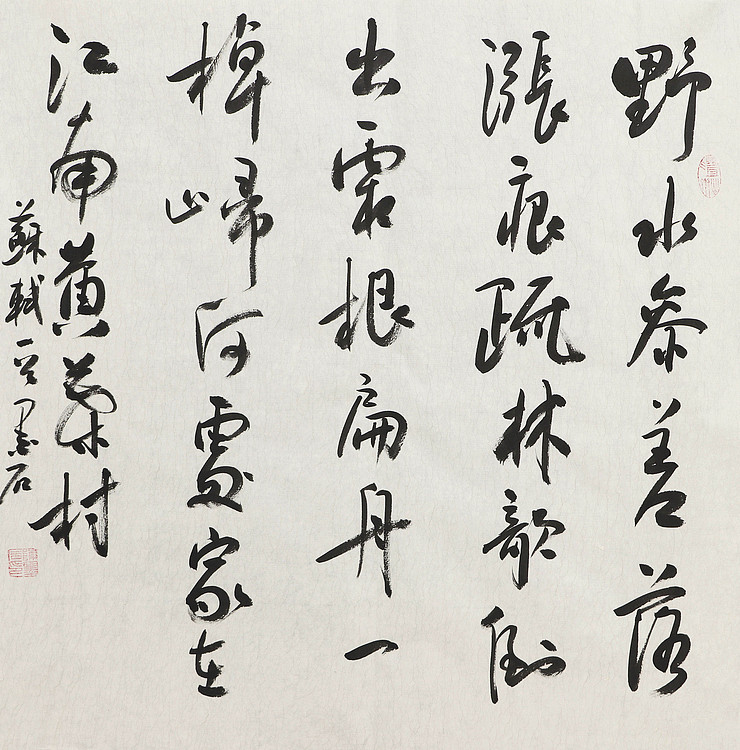 野水參差落
漲痕疏林欹倒
出霜根扁舟一
棹歸何處家在
江南黃葉村
蘇軾 墨石